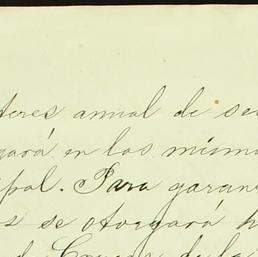 teres anual de se
gará en los mismo
ipal. Para garan
s se otorgará h
d Crucer de la